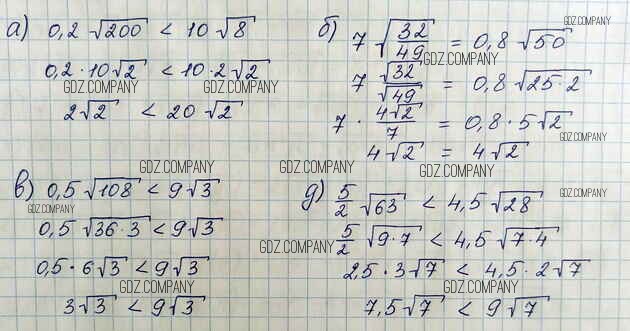 а) 0,2 √200 < 10 √8
0,2 · 10 √2 < 10 · 2 √2
2√2 < 20 √2
б) 7 √(32/49) = 0,8 √50
7 √32/√49 = 0,8 √(25·2)
7 · 4√2/7 = 0,8 · 5√2
4√2 = 4√2
в) 0,5 √108 < 9√3
0,5 √(36·3) < 9√3
0,5 · 6√3 < 9√3
3√3 < 9√3
д) 5/2 √63 < 4,5 √28
5/2 √(9·7) < 4,5 √(7·4)
2,5 · 3√7 < 4,5 · 2√7
7,5√7 < 9√7
GDZ.COMPANY
GDZ.COMPANY
GDZ.COMPANY
GDZ.COMPANY
GDZ.COMPANY
GDZ.COMPANY
GDZ.COMPANY
GDZ.COMPANY
GDZ.COMPANY
GDZ.COMPANY
GDZ.COMPANY
GDZ.COMPANY
GDZ.COMPANY